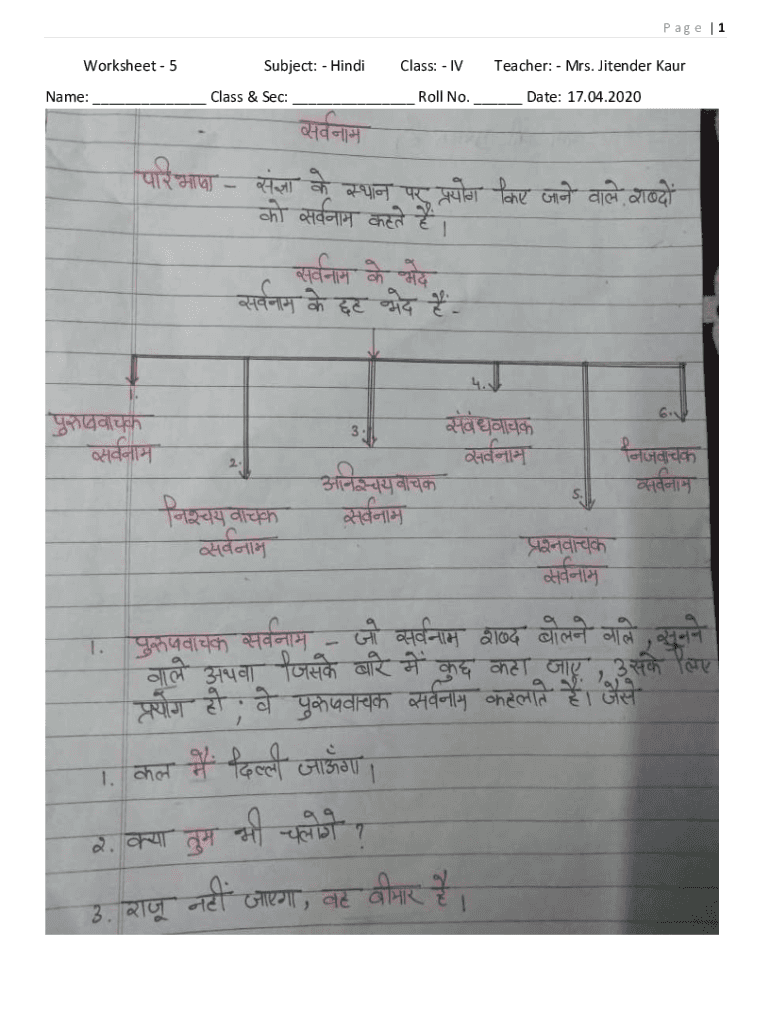 Page | 1
Worksheet - 5 Subject: - Hindi Class: - IV Teacher: - Mrs. Jitender Kaur
Name: ______________ Class & Sec: _______________ Roll No. ______ Date: 17.04.2020
सर्वनाम
परिभाषा – संज्ञा के स्थान पर प्रयोग किए जाने वाले शब्दों
को सर्वनाम कहते हैं।
सर्वनाम के भेद
सर्वनाम के छह भेद हैं -
1.
पुरुषवाचक
सर्वनाम
2.
निश्चयवाचक
सर्वनाम
3.
अनिश्चयवाचक
सर्वनाम
4.
संबंधवाचक
सर्वनाम
5.
प्रश्नवाचक
सर्वनाम
6.
निजवाचक
सर्वनाम
1. पुरुषवाचक सर्वनाम – जो सर्वनाम शब्द बोलने वाले, सुनने
वाले अथवा जिसके बारे में कुछ कहा जाए, उसके लिए
प्रयोग हो; वे पुरुषवाचक सर्वनाम कहलाते हैं। जैसे
1. कल मैं दिल्ली जाऊँगा।
2. क्या तुम भी चलोगे?
3. राजू नहीं जाएगा, वह बीमार है।